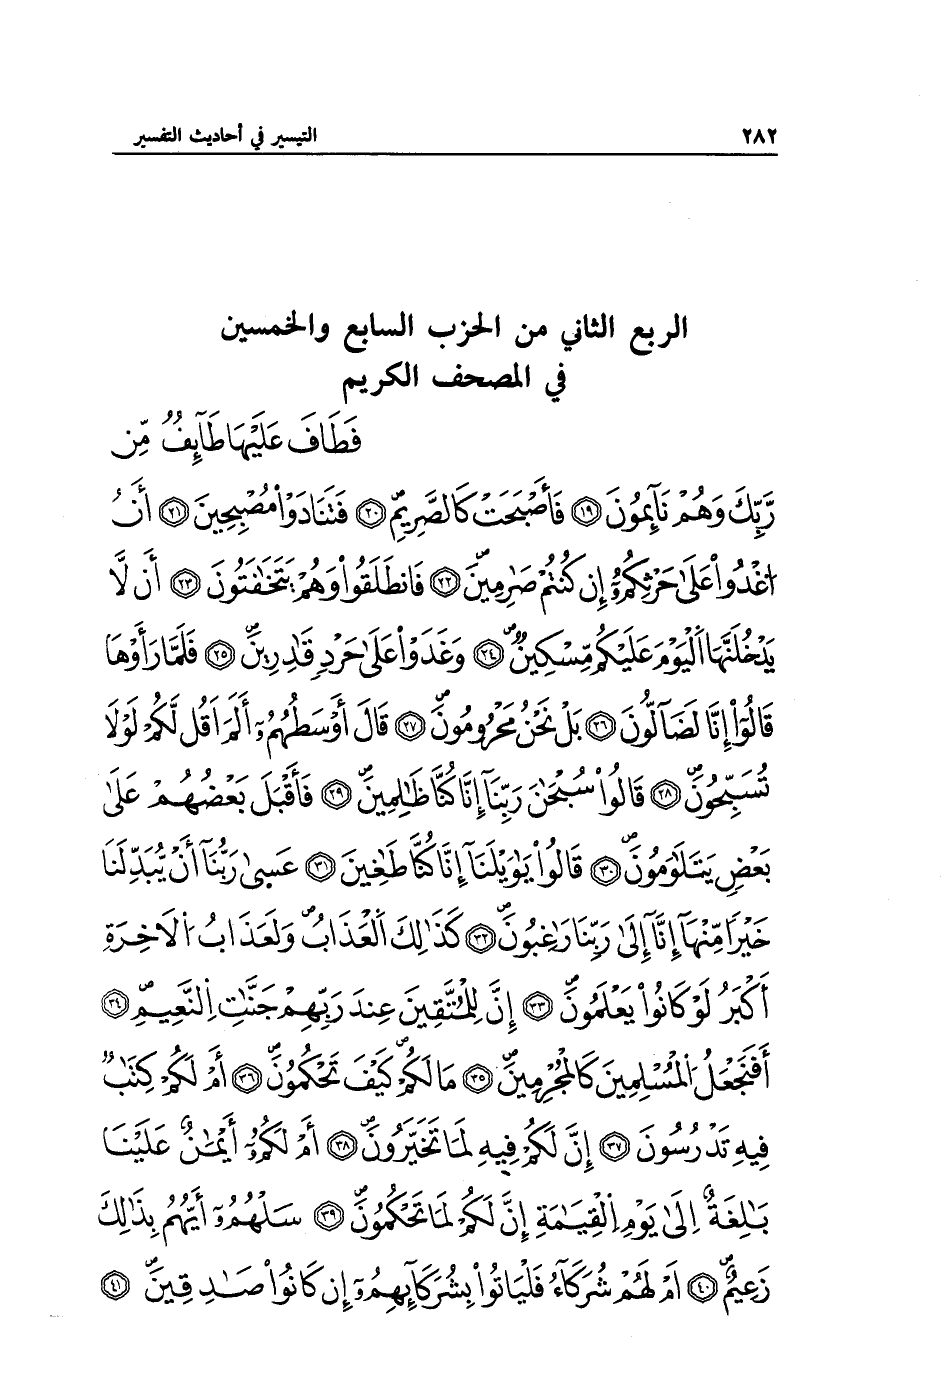 ٢٨٢ التيسير في أحاديث التفسير
الربع الثاني من الحزب السابع والخمسين
في المصحف الكريم
فَطَافَ عَلَيْهَا طَآئِفٌ مِّن
رَّبِّكَ وَهُمْ نَآئِمُونَ ١٩ فَأَصْبَحَتْ كَالصَّرِيمِ ٢٠ فَتَنَادَوْاْ مُصْبِحِينَ ٢١ أَنُ
اغْدُواْ عَلَىٰ حَرْثِكُمُۥٓ إِن كُنتُمْ صَٰرِمِينَ ٢٢ فَانطَلَقُواْ وَهُمْ يَتَخَٰفَتُونَ ٢٣ أَن لَّا
يَدْخُلَنَّهَا اَلْيَوْمَ عَلَيْكُم مِّسْكِينٌ ٢٤ وَغَدَوْاْ عَلَىٰ حَرْدٍ قَٰدِرِينَ ٢٥ فَلَمَّا رَأَوْهَا
قَالُوٓاْ إِنَّا لَضَآلُّونَ ٢٦ بَلْ نَحْنُ مَحْرُومُونَ ٢٧ قَالَ أَوْسَطُهُمُۥٓ أَلَمَ اَقُل لَّكُمْ لَوْلَا
تُسَبِّحُونَ ٢٨ قَالُواْ سُبْحَٰنَ رَبِّنَآ إِنَّا كُنَّا ظَٰلِمِينَ ٢٩ فَأَقْبَلَ بَعْضُهُمْ عَلَىٰ
بَعْضٍ يَتَلَٰوَمُونَ ٣٠ قَالُواْ يَٰوَيْلَنَآ إِنَّا كُنَّا طَٰغِينَ ٣١ عَسىٰ رَبُّنَآ أَنْ يُّبَدِّلَنَا
خَيْراً مِّنْهَآ إِنَّآ إِلَىٰ رَبِّنَا رَٰغِبُونَ ٣٢ كَذَٰلِكَ اَلْعَذَابُ وَلَعَذَابُ اُلَاخِرَةِ
أَكْبَرُ لَوْ كَانُواْ يَعْلَمُونَ ٣٣ إِنَّ لِلْمُتَّقِينَ عِندَ رَبِّهِمْ جَنَّٰتِ اِلنَّعِيمِ ٣٤
أَفَنَجْعَلُ اُلْمُسْلِمِينَ كَالْمُجْرِمِينَ ٣٥ مَا لَكُمْ كَيْفَ تَحْكُمُونَ ٣٦ أَمْ لَكُمْ كِتَٰبٌ
فِيهِ تَدْرُسُونَ ٣٧ إِنَّ لَكُمْ فِيهِ لَمَا تَخَيَّرُونَ ٣٨ أَمْ لَكُمُۥٓ أَيْمَٰنٌ عَلَيْنَا
بَٰلِغَةٌ اِلَىٰ يَوْمِ اِلْقِيَٰمَةِ إِنَّ لَكُمْ لَمَا تَحْكُمُونَ ٣٩ سَلْهُمُۥٓ أَيُّهُم بِذَٰلِكَ
زَعِيمٌ ٤٠ اَمْ لَهُمْ شُرَكَآءُ فَلْيَاتُواْ بِشُرَكَآئِهِمُۥٓ إِن كَانُواْ صَٰدِقِينَ ٤١